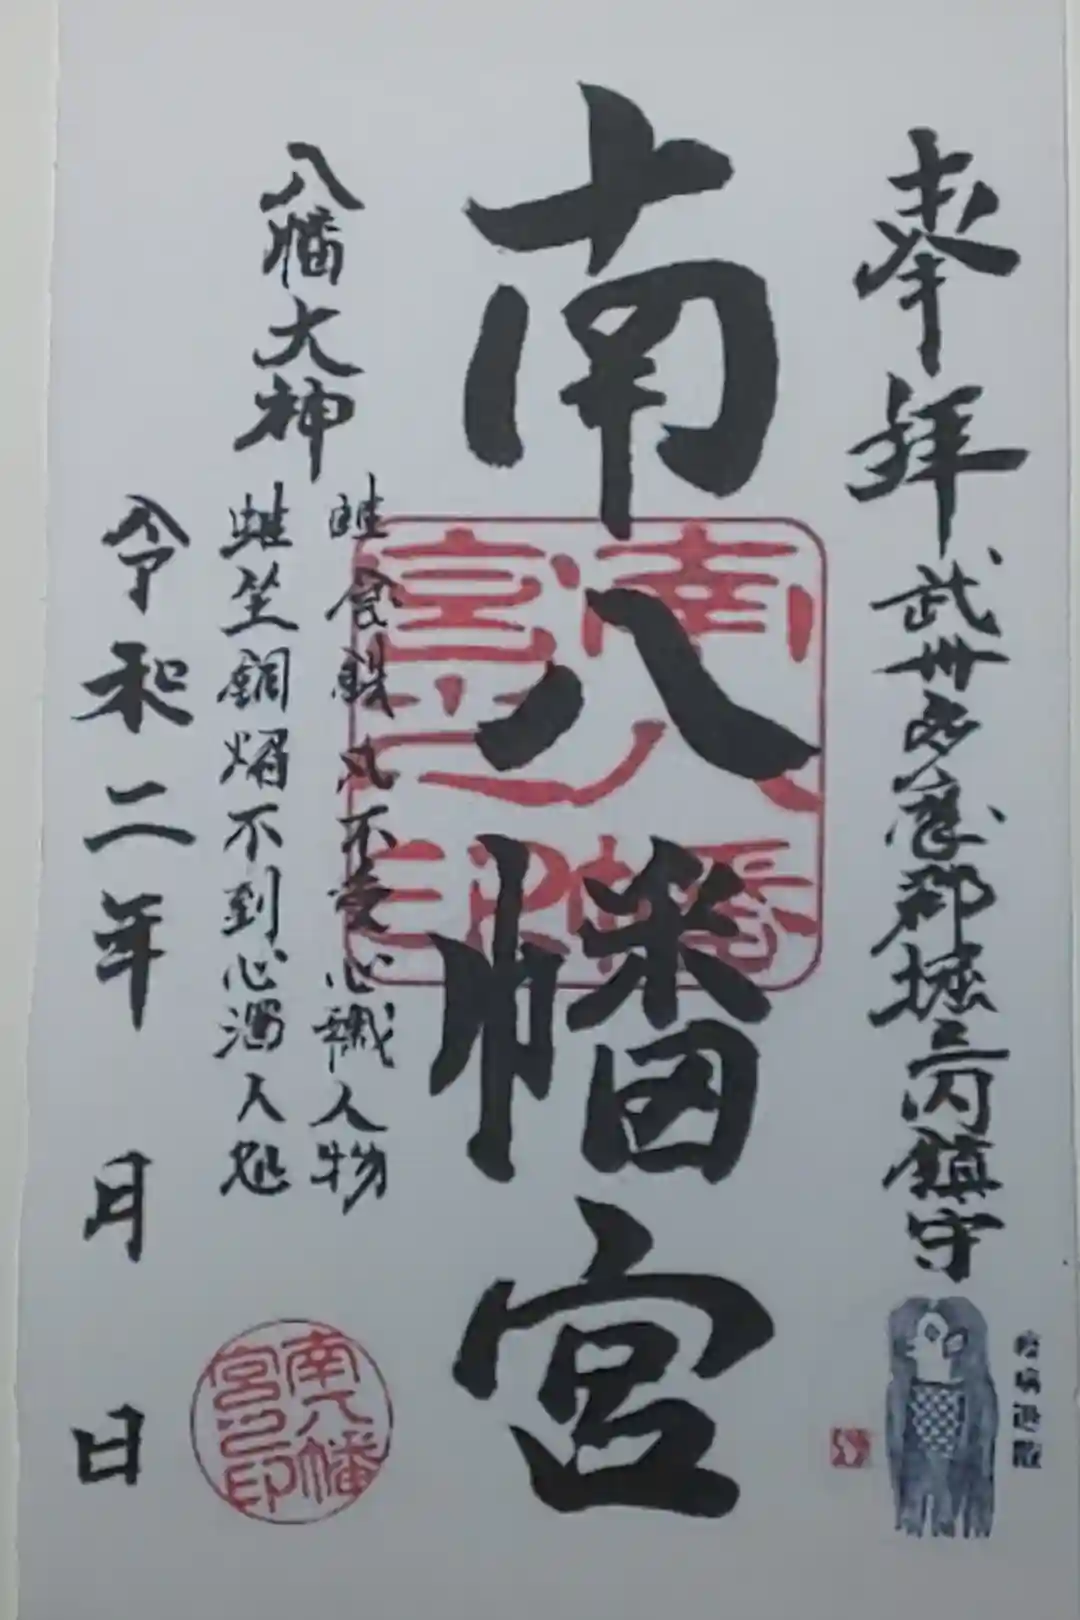 奉拝 武州多摩郡堀之内鎮守
疫病退散
南八幡宮
南八幡宮之印
八幡大神
雖食鉄丸不受心穢人物
雖坐銅焔不到心濁人処
令和二年 月 日
南八幡宮之印